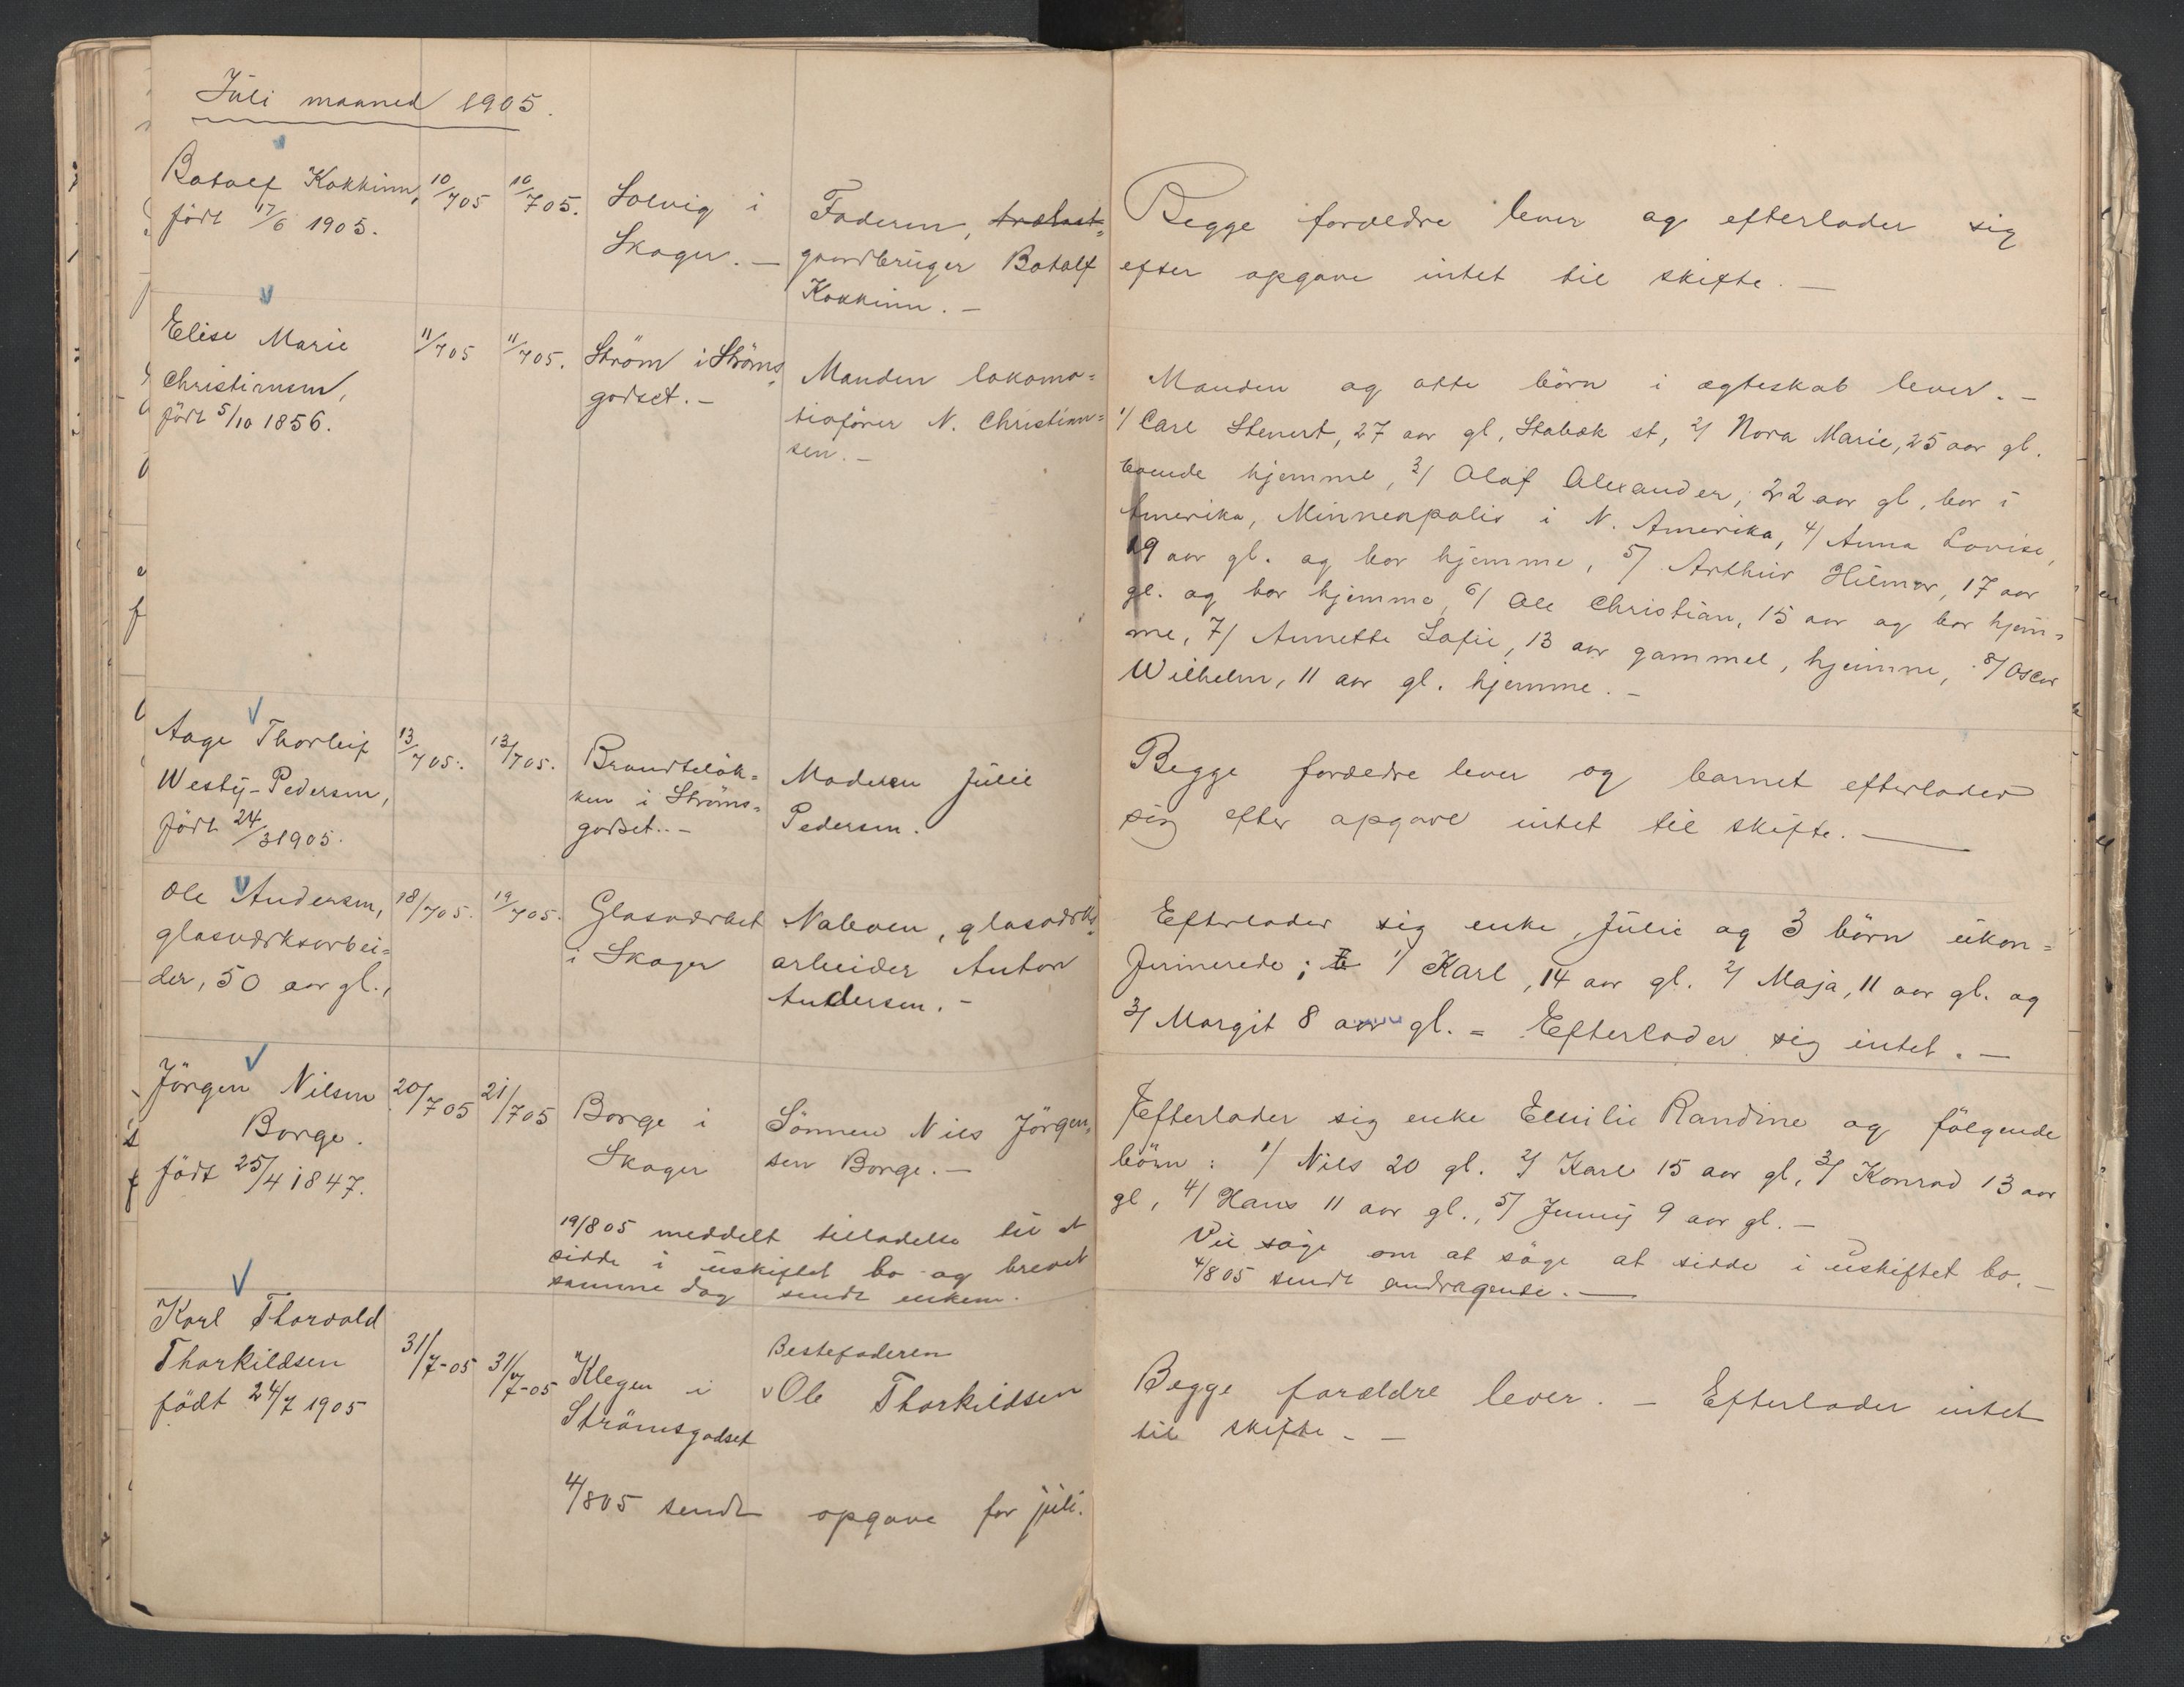 Juli maaned 1905.
Botolf Kokkinn, 10/7 05 10/7 05. Solvig i Faderen, trælast=
født 17/6 1905. Skoger. — gaardbruger Botolf
Kokkinn. —
Begge forældre lever og efterlader sig
efter opgave intet til skifte. —
Elise Marie 11/7 05 11/7 05. Strøm i Strøms= Manden lokomo=
Christiansen, godset. — tivfører N. Christian=
født 5/10 1856. sen. —
Manden og otte børn i ægteskab lever. —
1/ Carl Stenert, 27 aar gl, Stabæk st, 2/ Nora Marie, 25 aar gl.
boende hjemme, 3/ Olaf Alexander, 22 aar gl, bor i
Amerika, Minneapolis i N. Amerika, 4/ Anna Lovise,
19 aar gl. og bor hjemme, 5/ Arthur Hilmar, 17 aar
gl. og bor hjemme, 6/ Ole Christian, 15 aar og bor hjem=
me, 7/ Annette Sofie, 13 aar gammel, hjemme, 8/ Oscar
Wilhelm, 11 aar gl. hjemme. —
Aage Thorleif 13/7 05. 13/7 05. Brandteløk= Moderen Julie
Westy-Pedersen, ken i Strøms= Pedersen.
født 24/3 1905. godset. —
Begge forældre lever og barnet efterlader
sig efter opgave intet til skifte. —
Ole Andersen, 18/7 05. 19/7 05. Glasværket Naboen, glasværks=
glasværksarbei= i Skoger arbeider Anton
der, 50 aar gl., Andersen. —
Efterlader sig enke, Julie og 3 børn ukon=
firmerede; 1/ Karl, 14 aar gl. 2/ Maja, 11 aar gl. og
3/ Margit 8 aar gl. = Efterlader sig intet. —
Jørgen Nilsen 20/7 05 21/7 05 Borge i Sønnen Nils Jørgen=
Borge. Skoger sen Borge. —
født 25/4 1847.
19/8 05 meddelt tilladelse til at
sidde i uskiftet bo og brevet
samme dag sendt enken.
Efterlader sig enke Emilie Randine og følgende
børn: 1/ Nils 20 gl. 2/ Karl 15 aar gl, 3/ Konrad 13 aar
gl, 4/ Hans 11 aar gl., 5/ Jenny 9 aar gl. —
Vil søge om at søge at sidde i uskiftet bo. —
4/8 05 sendt andragende. —
Karl Thorvald Bestefaderen
Thorkildsen 31/7-05 31/7-05 Klegen i Ole Thorkildsen
født 24/7 1905 Strømsgodset
Begge forældre lever. — Efterlader intet
til skifte — —
4/8 05 sendt opgave for juli.